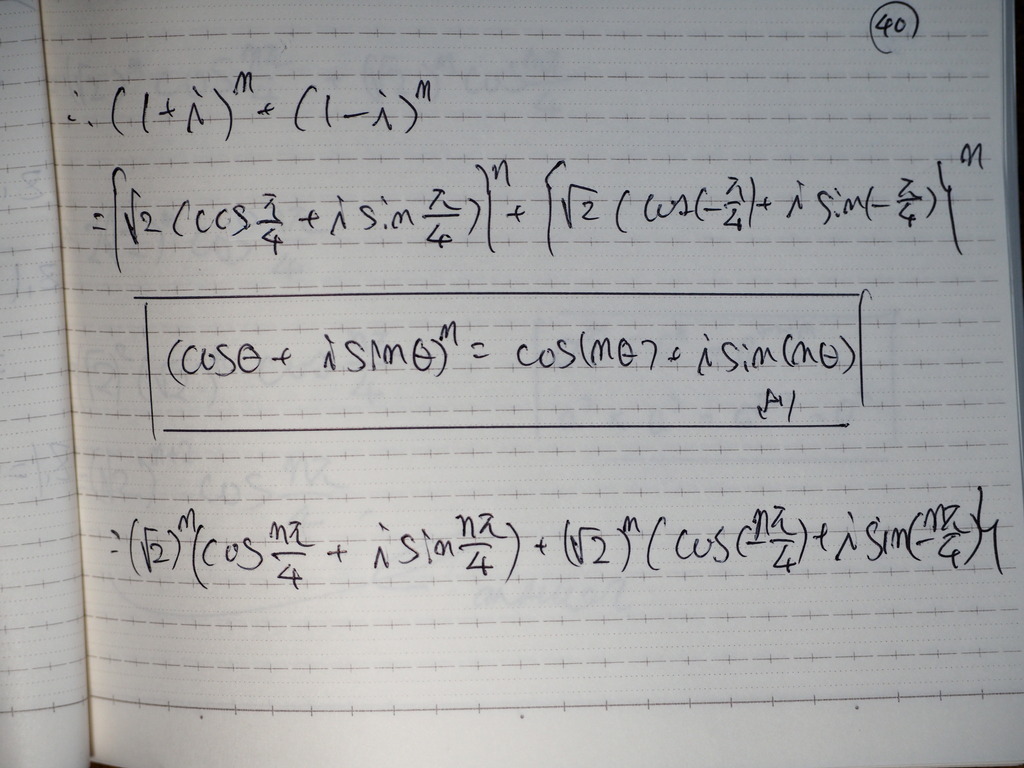 40
∴ (1+i)^n + (1-i)^n
= {√2 (cos π/4 + i sin π/4)}^n + {√2 (cos(-π/4) + i sin(-π/4)}^n
(cosθ + i sinθ)^n = cos(nθ) + i sin(nθ)
より
= (√2)^n (cos nπ/4 + i sin nπ/4) + (√2)^n (cos(-nπ/4) + i sin(-nπ/4)}